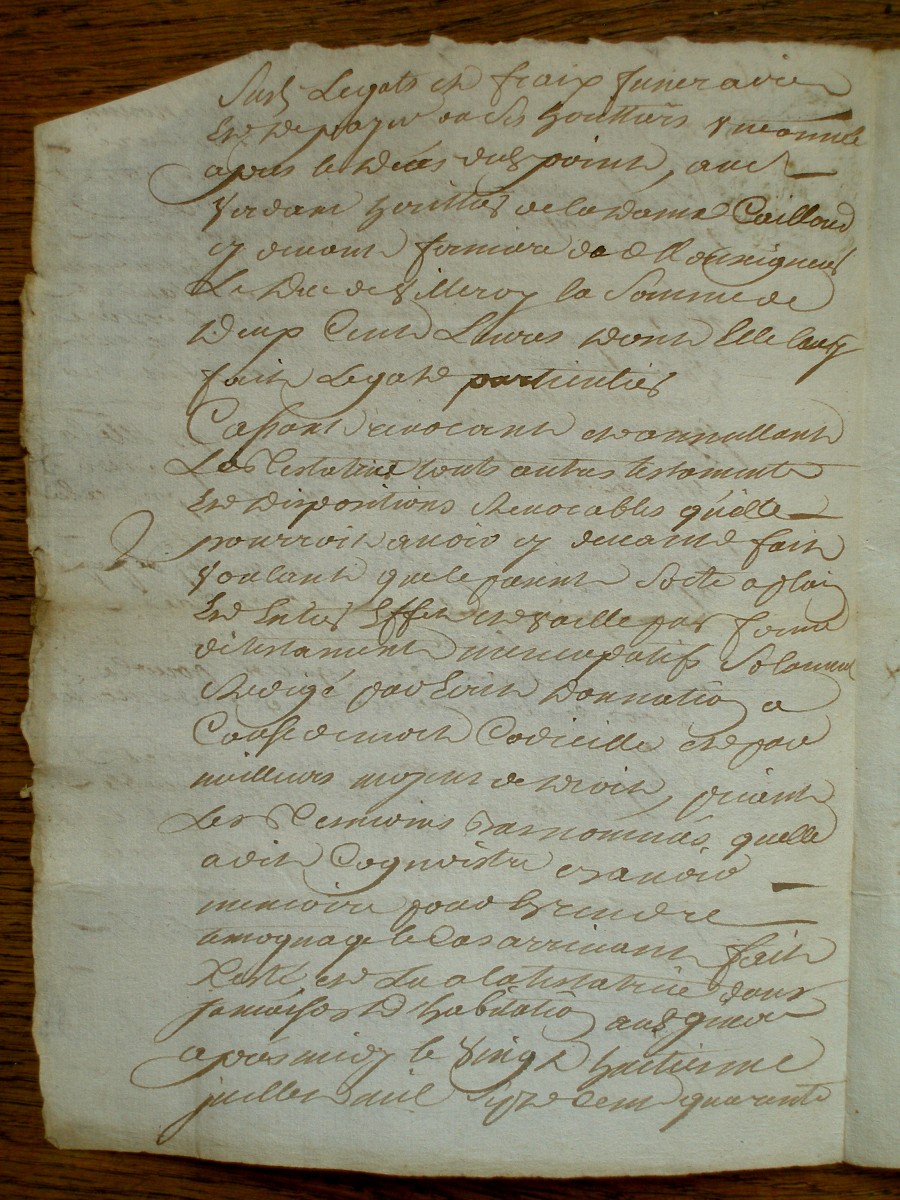 Susd Legats et fraix funeraire
Et de payer a ses heritiers
apres le deces dud point, aud
Verdant heritier de la dame Caillaud
cy devant fermiere de Monseigneur
Le Duc de Villeroy la Somme de
deux Cent Livres dont Elle leur
fait Legat et particulier
Cassant revocant et annullant
La Testatrice touts autres testaments
Et dispositions revocables qu'elle
pourroit avoir cy devant fait
Voulant que le present Sorte a plein
Et Entier Effet et vaille par forme
de testament nuncupatif Solemnel
Redigé par Ecrit donnation a
Cause de mort Codicille et par
meilleurs moyens de droit, priant
Les Temoins bas nommés quelle
a dit Cognoistre et avoir
memoire pour En rendre
temognage le Cas arrivant fait
Recité et Lu a la testatrice dans
sa maison d'habitation aud
apres midy le Vingt huitieme
juillet mil sept cent quarante